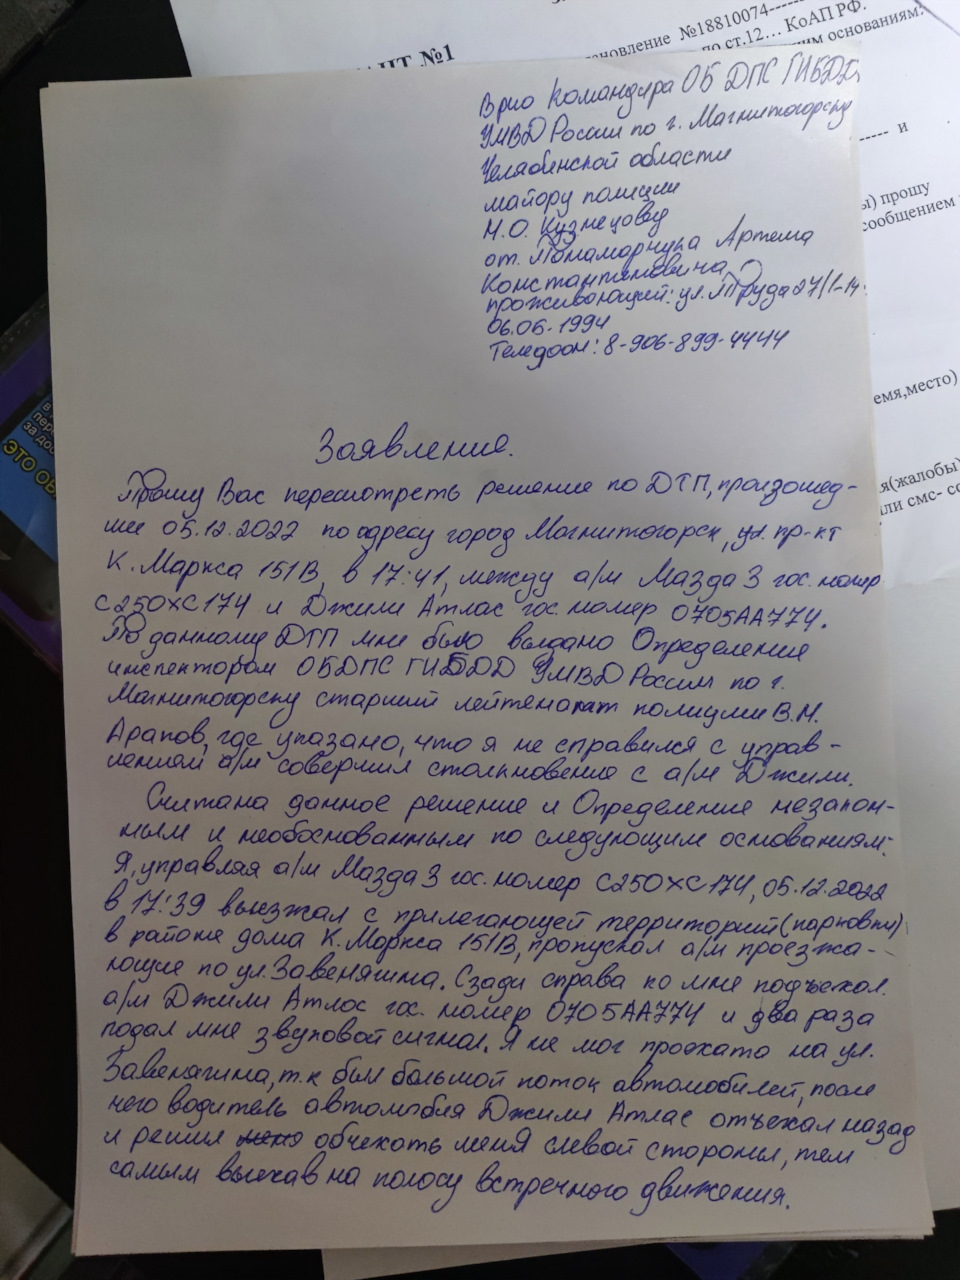 АНТ №1
тановление №18810074------
по ст.12... КоАП РФ.
им основаниям:
------ и
ы) прошу
сообщением
емя,место)
я(жалобы)
ли смс- со
ЭТО ОБ
Врио Командира ОБ ДПС ГИБДД
УМВД России по г. Магнитогорску
Челябинской области
майору полиции
Н.О. Кузнецову
от. Понамарчука Артема
Константиновича
проживающий: ул. Труда 27/1-14
06.06.1994
Теледоон: 8-906-899-4444
Заявление.
Прошу Вас пересмотреть решение по ДТП, произошед-
шее 05.12.2022 по адресу город Магнитогорск, ул. пр-кт
К. Маркса 151В, в 17:41, между а/м Мазда 3 гос. номер
С250ХС174 и Джили Атлас гос. номер О705АА774.
По данному ДТП мне было выдано Определение
инспектором ОБДПС ГИБДД УМВД России по г.
Магнитогорску старший лейтенант полиции В.Н.
Арапов, где указано, что я не справился с управ-
лением а/м совершил столкновение с а/м Джили.
Считана данное решение и Определение незакон-
ным и необоснованным по следующим основаниям:
Я, управляя а/м Мазда 3 гос. номер С250ХС174, 05.12.2022
в 17:39 выезжал с прилегающей территорий (парковки)
в районе дома К. Маркса 151В, пропускал а/м проезжа-
ющие по ул. Завенягина. Сзади справа ко мне подъехал
а/м Джили Атлас гос. номер О705АА774 и два раза
подал мне звуковой сигнал. Я не мог проехать на ул.
Завенягина, т.к был большой поток автомобилей, после
чего водитель автомобия Джили Атлас отъехал назад
и решил меня объехать меня слевой стороны, тем
самым выехав на полосу встречного движения.